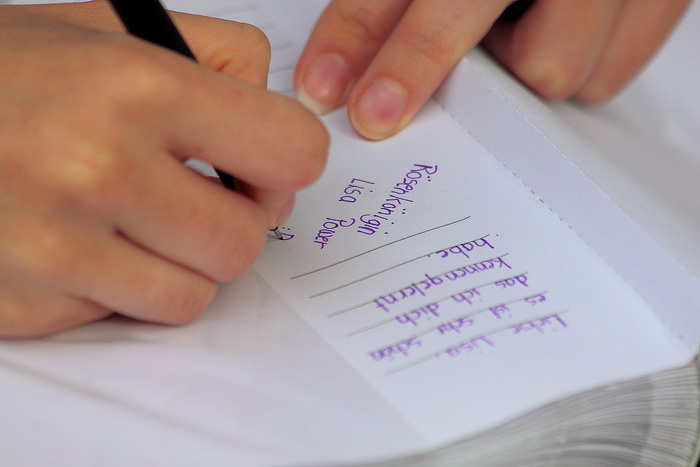 Liebe Lisa,
es ist sehr schön
das ich dich
kennengelernt
habe.
Rosenkönigin
Lisa Power